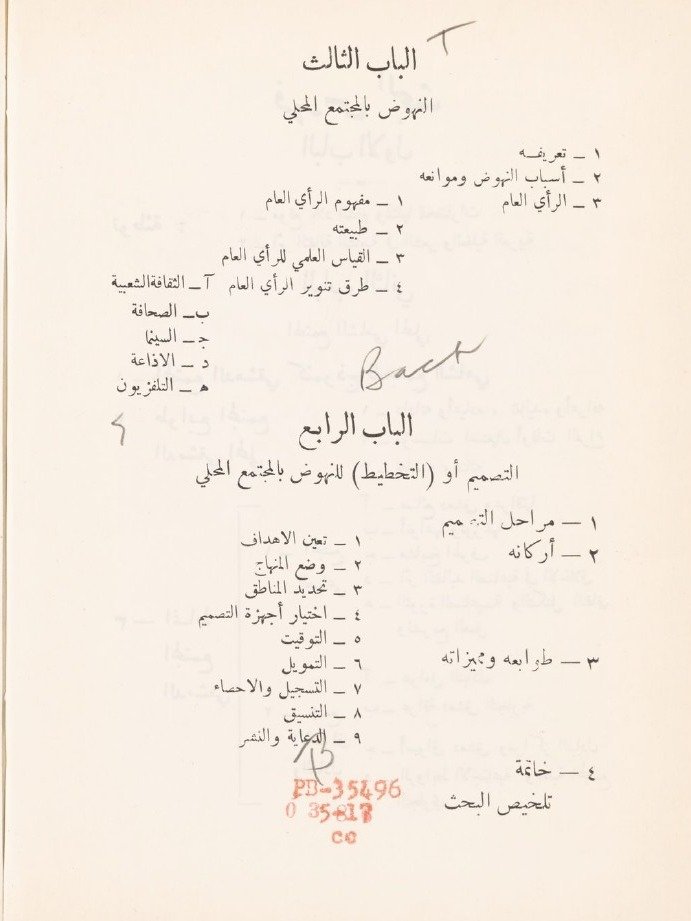 الباب الثالث
النهوض بالمجتمع المحلي
١ ـ تعريفه
٢ ـ أسباب النهوض وموانعه
٣ ـ الرأي العام ١ ـ مفهوم الرأي العام
٢ ـ طبيعته
٣ ـ القياس العلمي للرأي العام
٤ ـ طرق تنوير الرأي العام آ ـ الثقافة الشعبية
ب ـ الصحافة
ج ـ السينما
د ـ الاذاعة
ه ـ التلفزيون
الباب الرابع
التصميم أو (التخطيط) للنهوض بالمجتمع المحلي
١ ـ مراحل التصميم
٢ ـ أركانه ١ ـ تعين الاهداف
٢ ـ وضع المنهاج
٣ ـ تحديد المناطق
٤ ـ اختيار أجهزة التصميم
٥ ـ التوقيت
٦ ـ التمويل
٣ ـ طوابعه ومميزاته
٧ ـ التسجيل والاحصاء
٨ ـ التنسيق
٩ ـ الدعاية والنشر
٤ ـ خاتمة
تلخيص البحث
PD-35496
0 35-817
cc